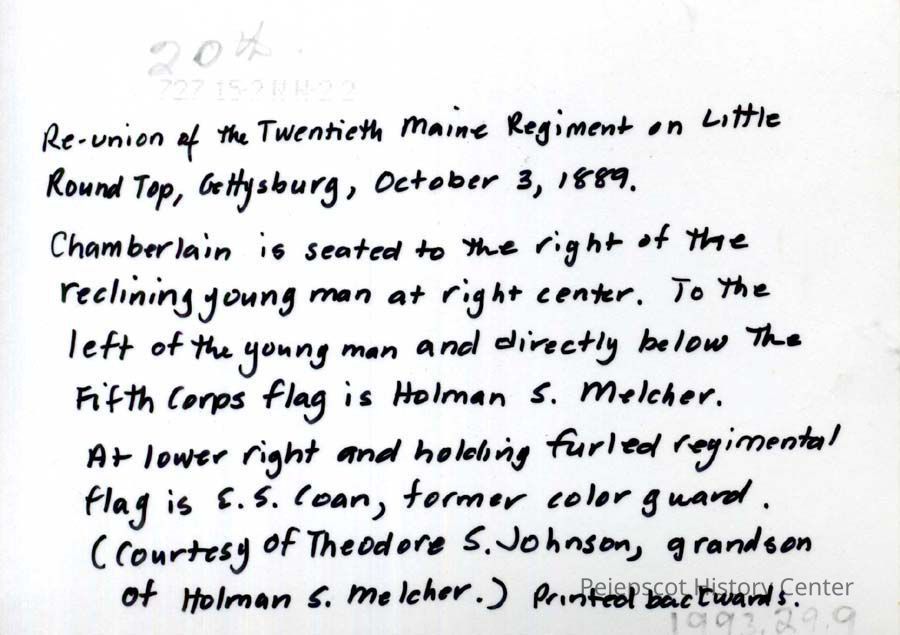 20th.
727 15-2 N N-22
Re-union of the Twentieth Maine Regiment on Little
Round Top, Gettysburg, October 3, 1889.
Chamberlain is seated to the right of the
reclining young man at right center. To the
left of the young man and directly below the
Fifth Corps flag is Holman S. Melcher.
At lower right and holding furled regimental
flag is E.S. Coan, former color guard.
(Courtesy of Theodore S. Johnson, grandson
of Holman S. Melcher.) Printed backwards.
Pejepscot History Center
1993.29.9